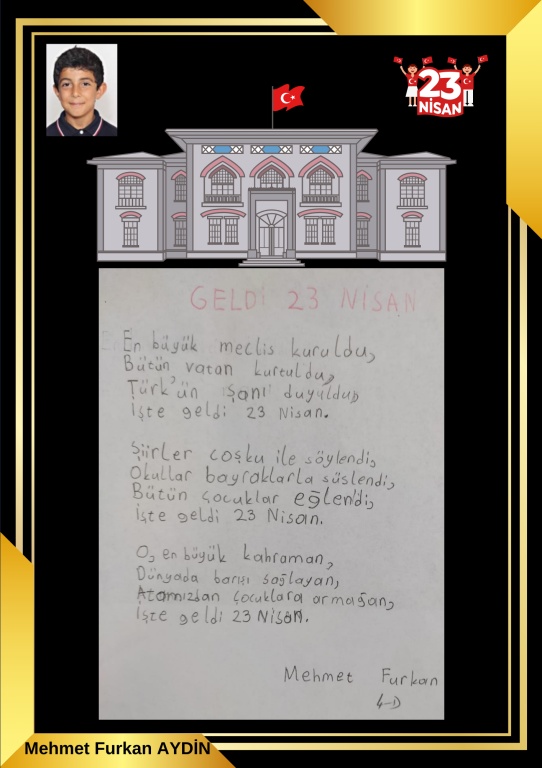 23
NİSAN
GELDİ 23 NİSAN
En büyük meclis kuruldu,
Bütün vatan kurtuldu,
Türk'ün şanı duyuldu,
İşte geldi 23 Nisan.
Şiirler coşku ile söylendi,
Okullar bayraklarla süslendi,
Bütün çocuklar eğlendi,
İşte geldi 23 Nisan.
O, en büyük kahraman,
Dünyada barışı sağlayan,
Atamızdan çocuklara armağan,
İşte geldi 23 Nisan.
Mehmet Furkan
4-D
Mehmet Furkan AYDİN